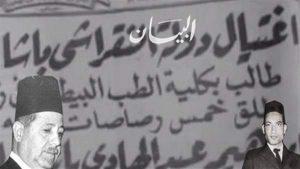 اغتيال دولة النقراشي باشا
البيان
طالب بكلية الطب البيطري
يطلق خمس رصاصات
عبد الهادي باشا